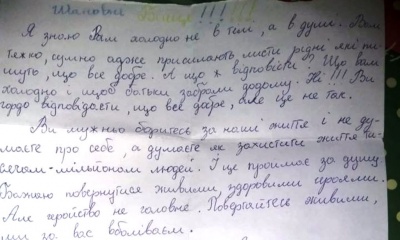 Шановні Бійці!!!!!
Я знаю Вам холодно не в тілі, а в душі. Вам
тяжко, сумно адже присилають листи рідні які пи
шуть, що все добре. А що ж відповісти? Що вам
холодно і щоб батьки забрали додому. Ні!!! Ви
гордо відповідаєте, що все добре, але це не так.
Ви мужньо боритесь за наші життя і не ду-
маєте про себе, а думаєте як захистити життя ти-
сячам-мільйонам людей. І це проймає за душу.
Бажаю повернутися живими, здоровими героями.
Але геройство не головне. Повертайтесь живими,
ми за вас вболіваєм.